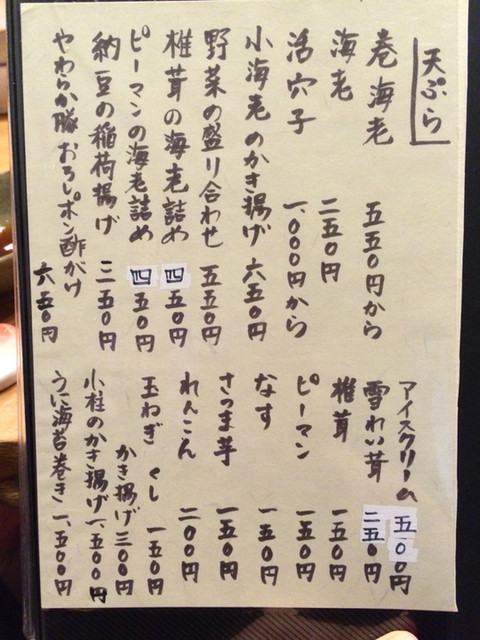 天ぷら
巻海老 五五〇円から
海老 二五〇円
活穴子 一、〇〇〇円から
小海老のかき揚げ 六五〇円
野菜の盛り合わせ 五五〇円
椎茸の海老詰め 四五〇円
ピーマンの海老詰め 四五〇円
納豆の稲荷揚げ 三五〇円
やわらか豚おろしポン酢がけ 六五〇円
アイスクリーム 五〇〇円
雪れい茸 二五〇円
椎茸 一五〇円
ピーマン 一五〇円
なす 一五〇円
さつま芋 一五〇円
れんこん 二〇〇円
玉ねぎ くし 一五〇円
かき揚げ 三〇〇円
小柱のかき揚げ 一、五〇〇円
うに海苔巻き 一、五〇〇円